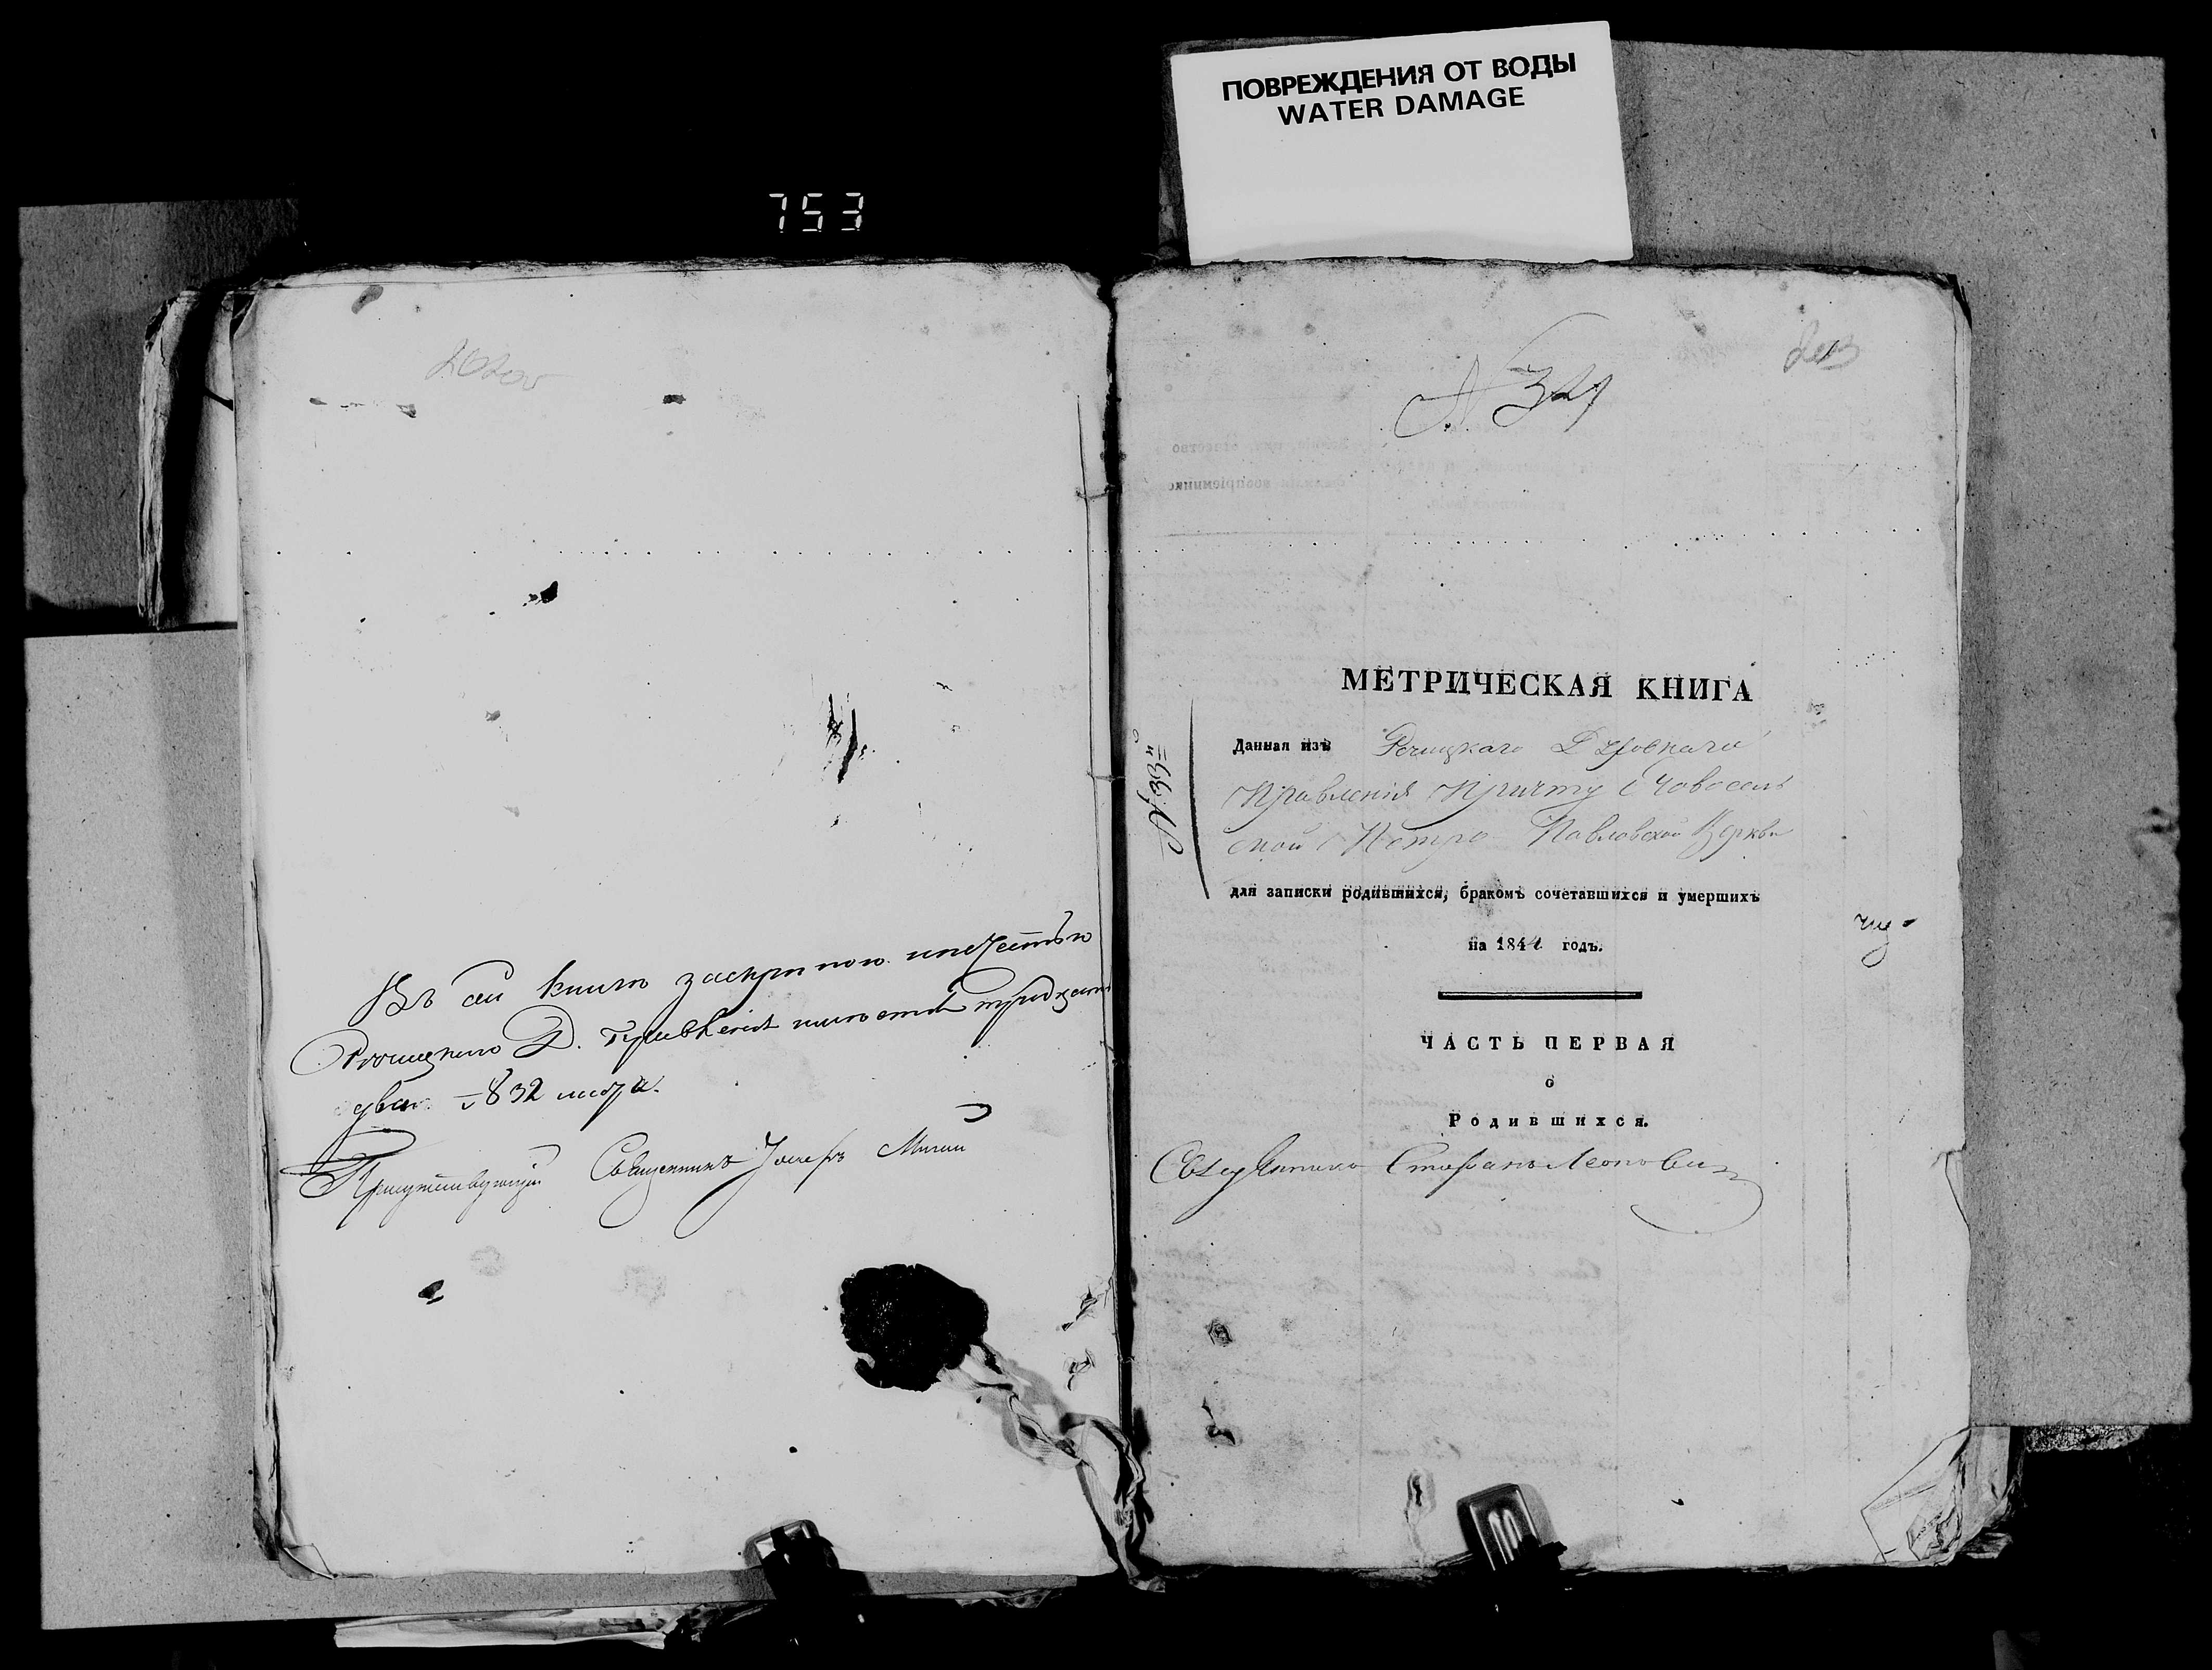 ПОВРЕЖДЕНИЯ ОТ ВОДЫ
WATER DAMAGE
753
202об
Въ сей книгѣ за скрѣпою и печатью
Рѣчицкаго Д. Правленія имѣется тридцать
два 32 листа.
Присутствующій Священникъ Іосифъ
203
N 321
МЕТРИЧЕСКАЯ КНИГА
Данная изъ Речицкаго Духовнаго
Правленія Причту Новосель
ской Петро-Павловской Церкви
для записки родившихся, бракомъ сочетавшихся и умершихъ
на 1844 годъ.
N. 33
ЧАСТЬ ПЕРВАЯ
о
Родившихся.
Священникъ Стефанъ Леонови